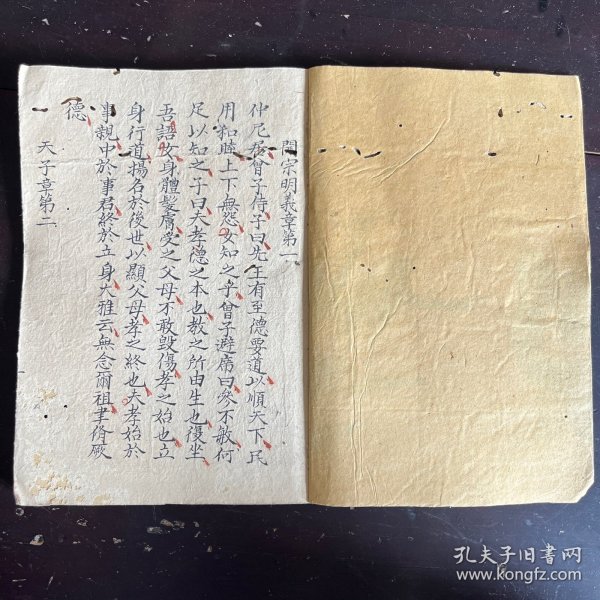 開宗明義章第一
仲尼居曾子侍子曰先王有至德要道以順天下民
用和睦上下無怨女知之乎曾子避席曰參不敏何
足以知之子曰夫孝德之本也教之所由生也復坐
吾語女身體髮膚受之父母不敢毀傷孝之始也立
身行道揚名於後世以顯父母孝之終也夫孝始於
事親中於事君終於立身大雅云無念爾祖聿脩厥
德
天子章第二
孔夫子旧书网
www.kongfz.com